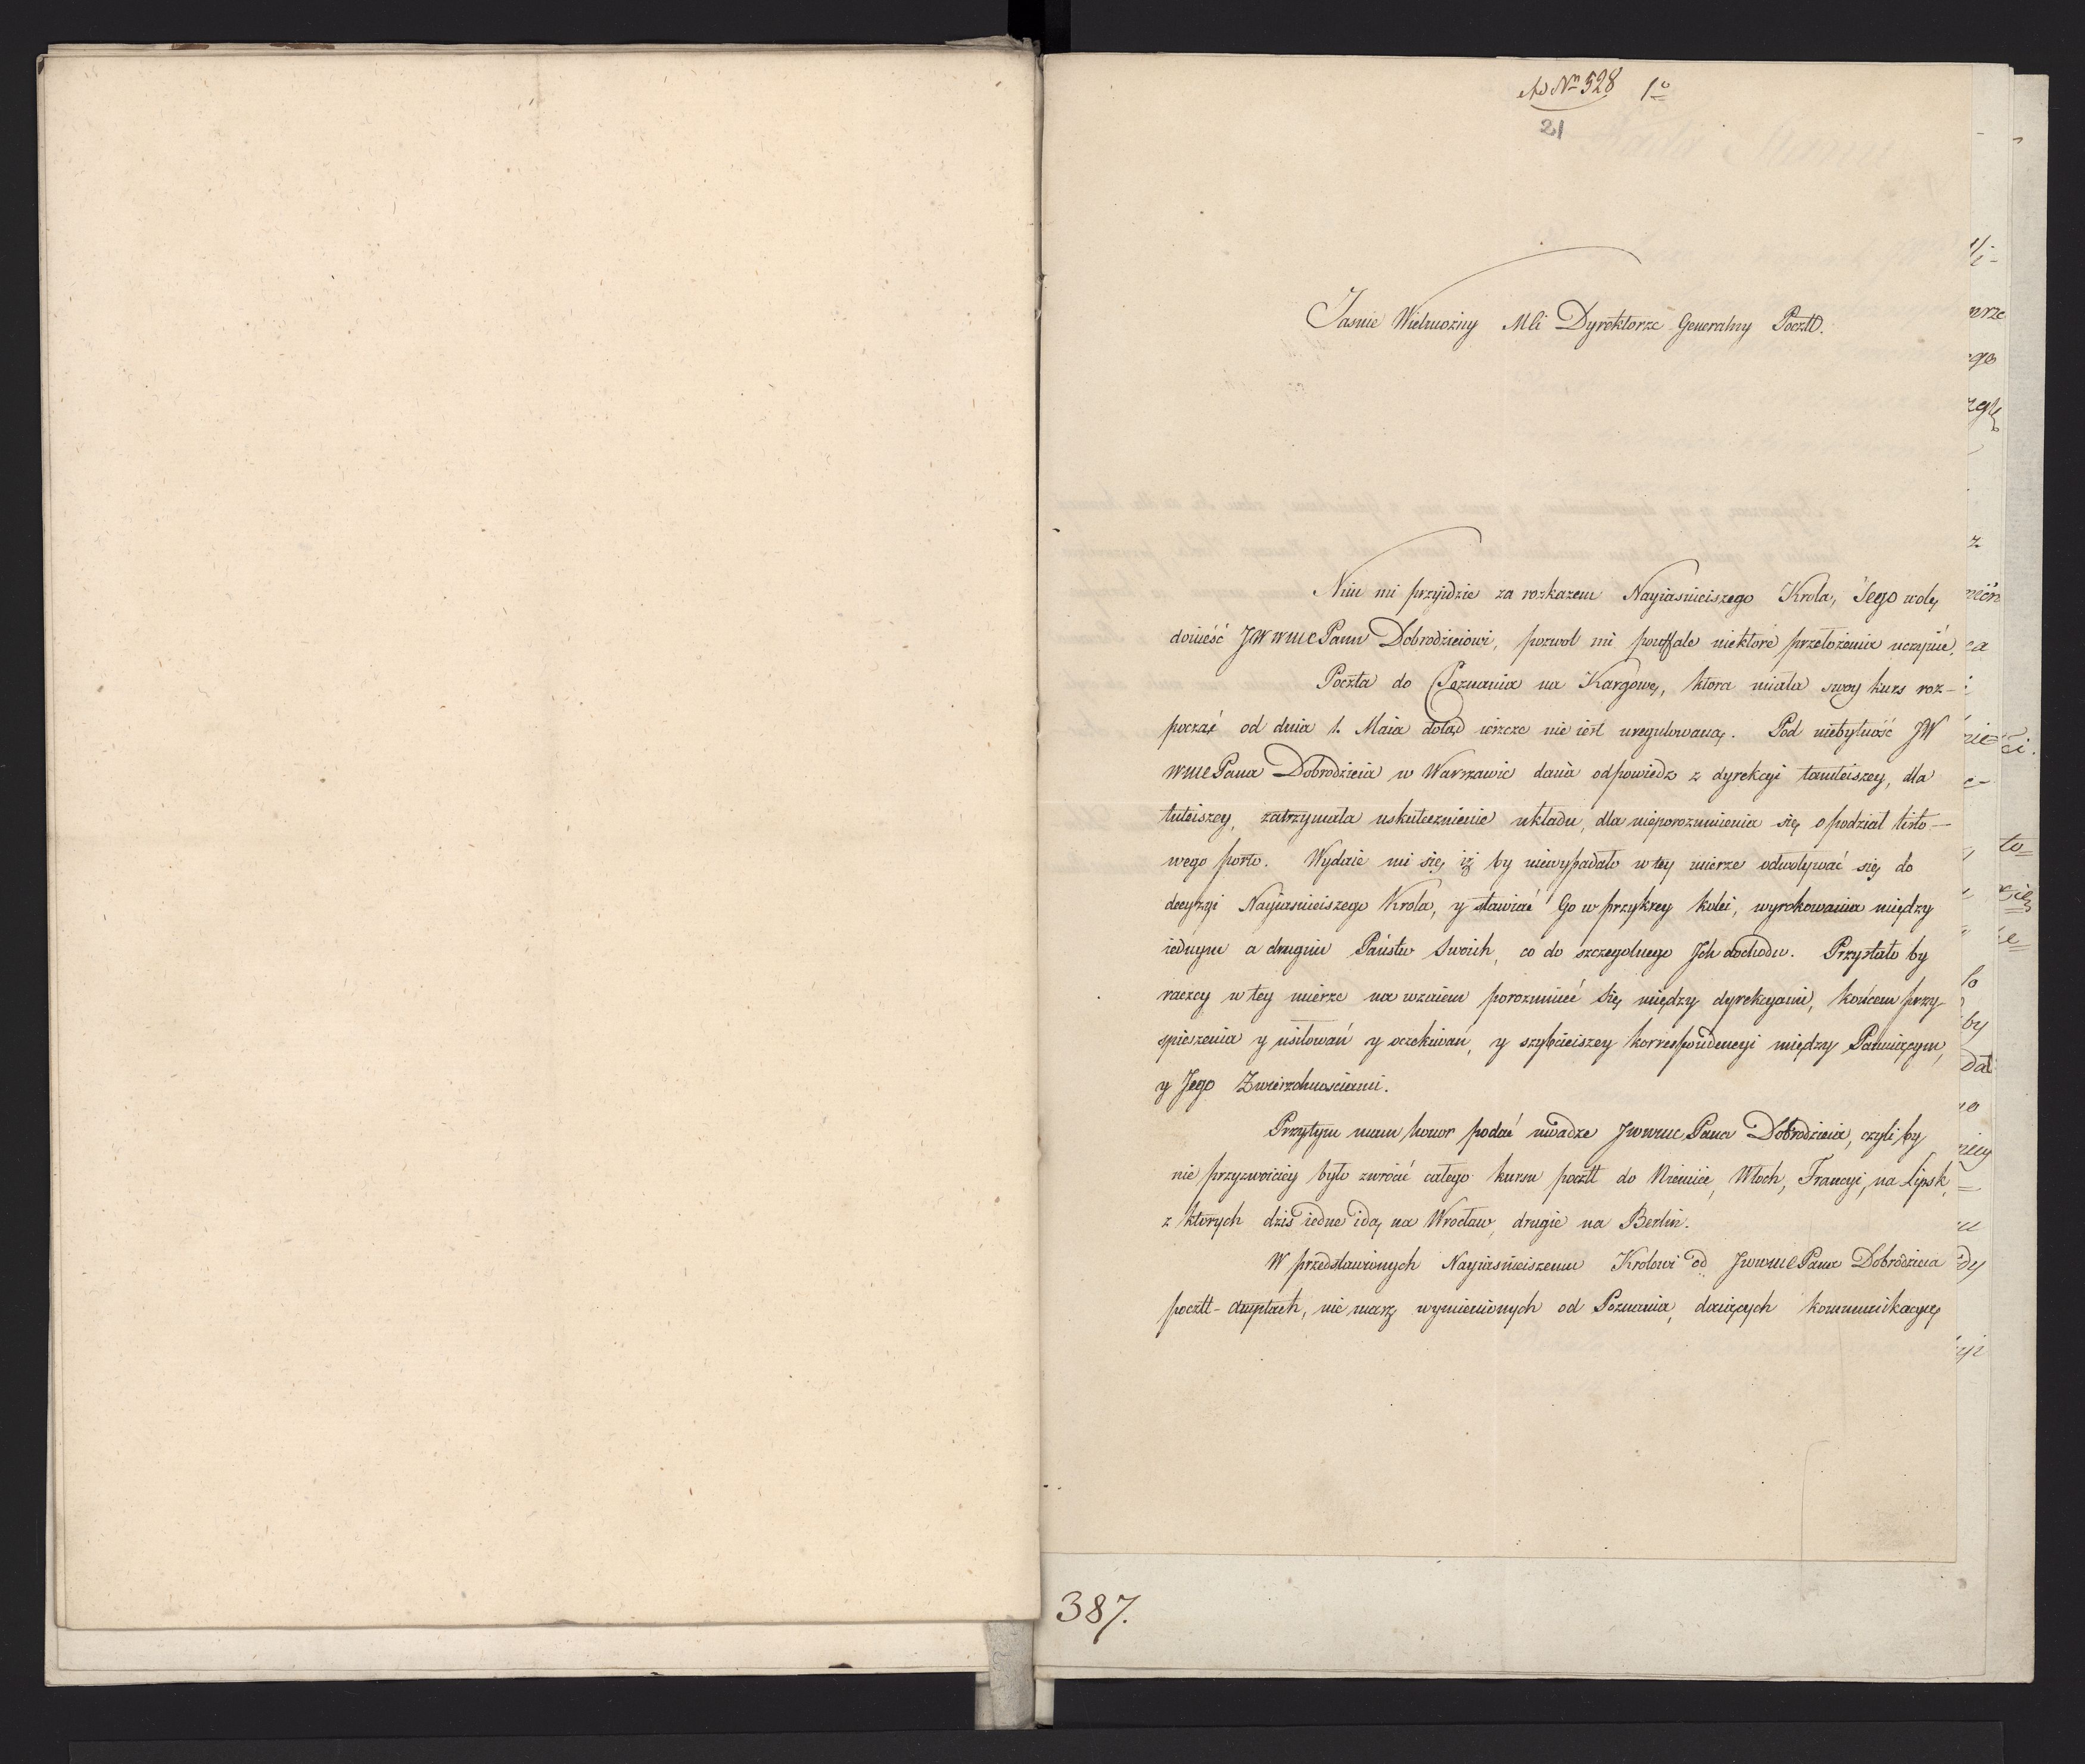 Ad Nm 528 1o
21
Jasnie Wielmożny Mci Dyrektorze Generalny Poczt.
Nim mi przyidzie za rozkazem Nayiasnieiszego Krola, Jego wolę
donieść JWWMC Panu Dobrodzieiowi, pozwol mi pouffale niektóre przełożenia uczynić.
Poczta do Poznania na Kargowę, ktora miała swoy kurs roz-
począć od dnia 1. Maia dotąd ieszcze nie iest uregulowaną. Pod niebytność JW
WMC Pana Dobrodzieia w Warszawie dana odpowiedz z dyrekcyi tamteiszey, dla
tuteiszey, zatrzymała uskutecznienie układu, dla nieporozumienia się o podział listo-
wego porto. Wydaie mi się iż by niewypadało w tey mierze odwoływać się do
decyzyi Nayiasnieiszego Krola, y stawiać Go w przykrey kolei, wyrokowania między
iednym a drugim Państw Swoich, co do szczegolnego Jch dochodu. Przystało by
raczey w tey mierze na wzaiem porozumieć się między dyrekcyami, końcem przy-
spieszenia y usiłowań y oczekiwań, y szybcieiszey korrespondencyi między Panuiącym,
y Jego Zwierzchnosciami.
Przytym mam honor podać uwadze JWWMC Pana Dobrodzieia, czyli by
nie przyzwoiciey było zwrócić całego kursu poczt do Niemiec, Włoch, Francyi, na Lipsk,
z ktorych dzis iedne idą na Wrocław, drugie na Berlin.
W przedstawionych Nayiasnieiszemu Krolowi od JWWMC Pana Dobrodzieia
poczt-amptach, nie masz wymienionych od Poznania, daiących kommunikacyę
387.